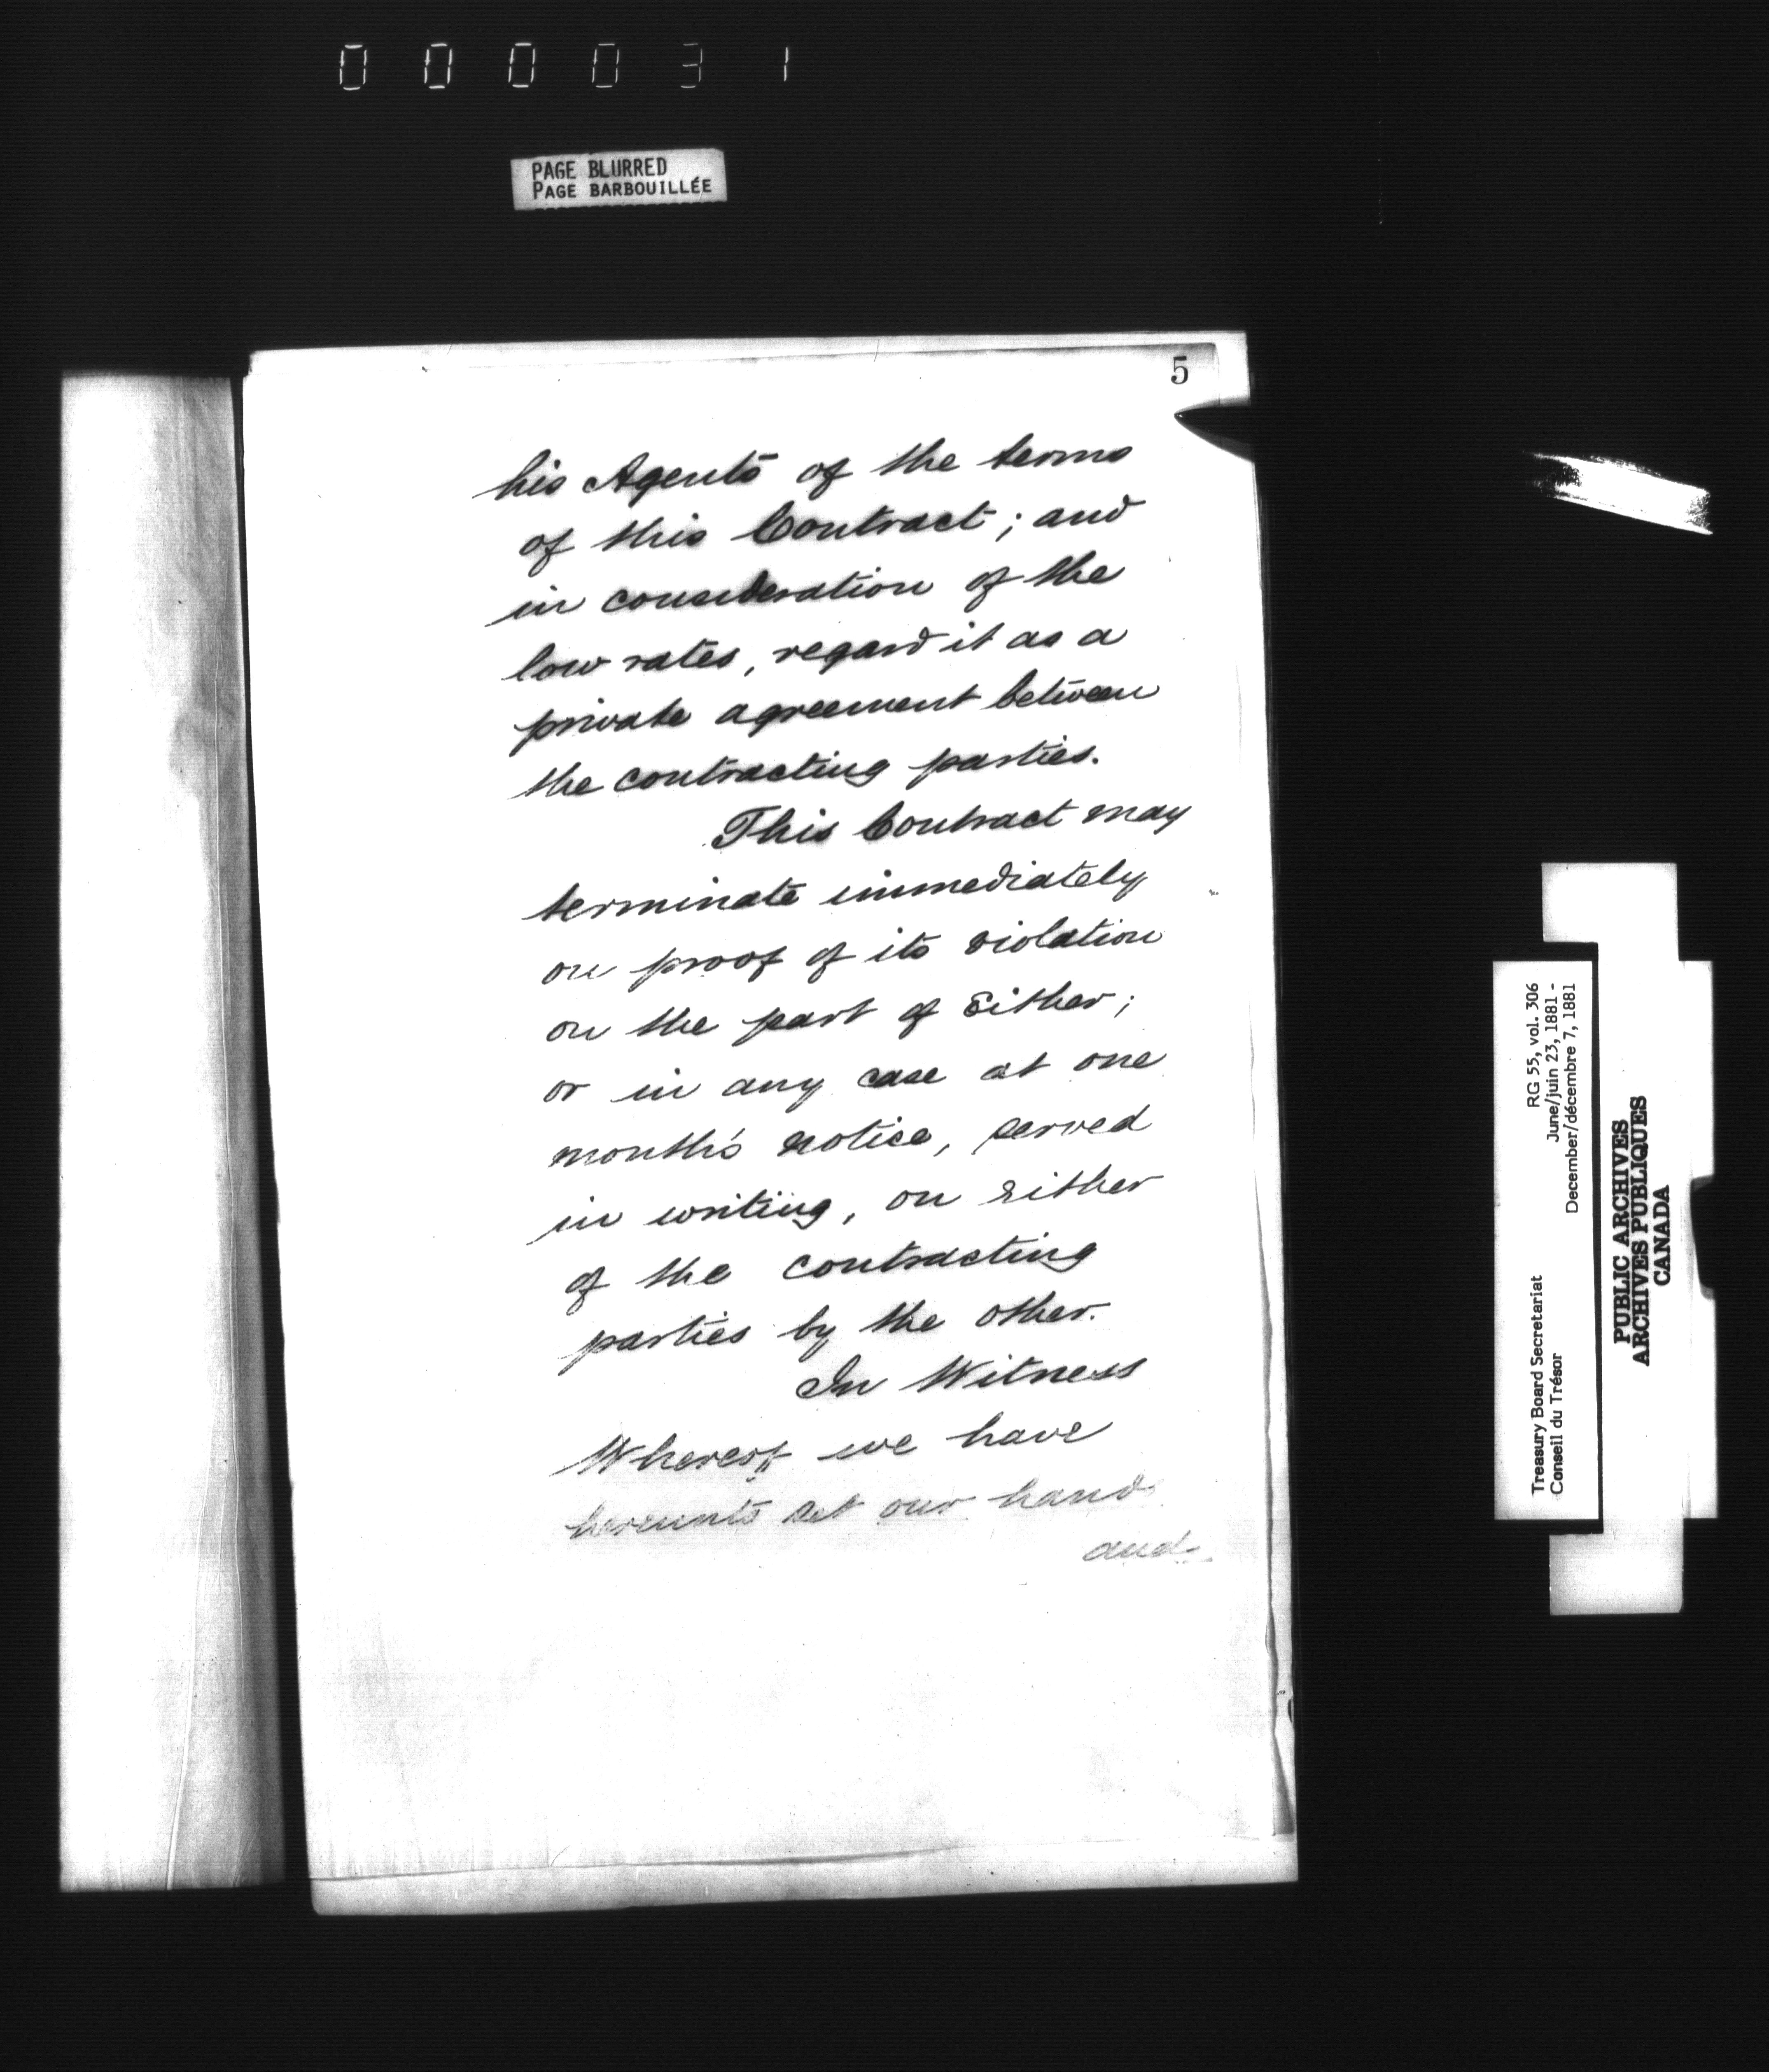 000031
PAGE BLURRED
PAGE BARBOUILLÉE
5
his Agents of the terms
of this Contract; and
in consideration of the
low rates, regard it as a
private agreement between
the contracting parties.
This Contract may
terminate immediately
on proof of its violation
on the part of Either;
or in any case at one
month's notice, served
in writing, on either
of the contracting
parties by the other.
In Witness
Whereof we have
hereunto set our hands
and
Treasury Board Secretariat
Conseil du Trésor
RG 55, vol. 306
June/juin 23, 1881 -
December/décembre 7, 1881
PUBLIC ARCHIVES
ARCHIVES PUBLIQUES
CANADA